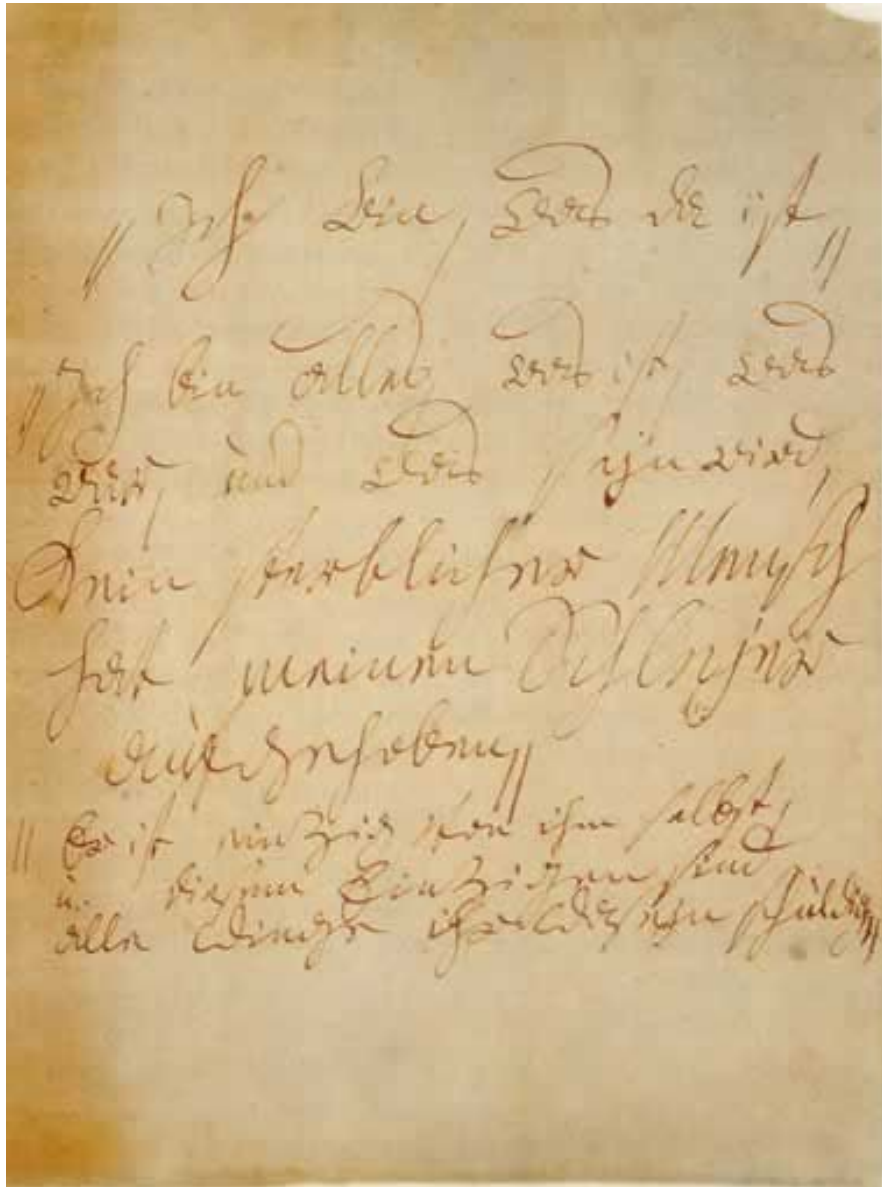 „ Ich bin, Was da ist „
„ Ich bin alles, Was ist, Was
war, und Was seyn wird,
Kein sterblicher Mensch
hat meinen Schleyer
aufgehoben „
„ Er ist einzig von ihm selbst,
u. diesem Einzigen sind
alle Dinge ihr Daseyn schuldig „